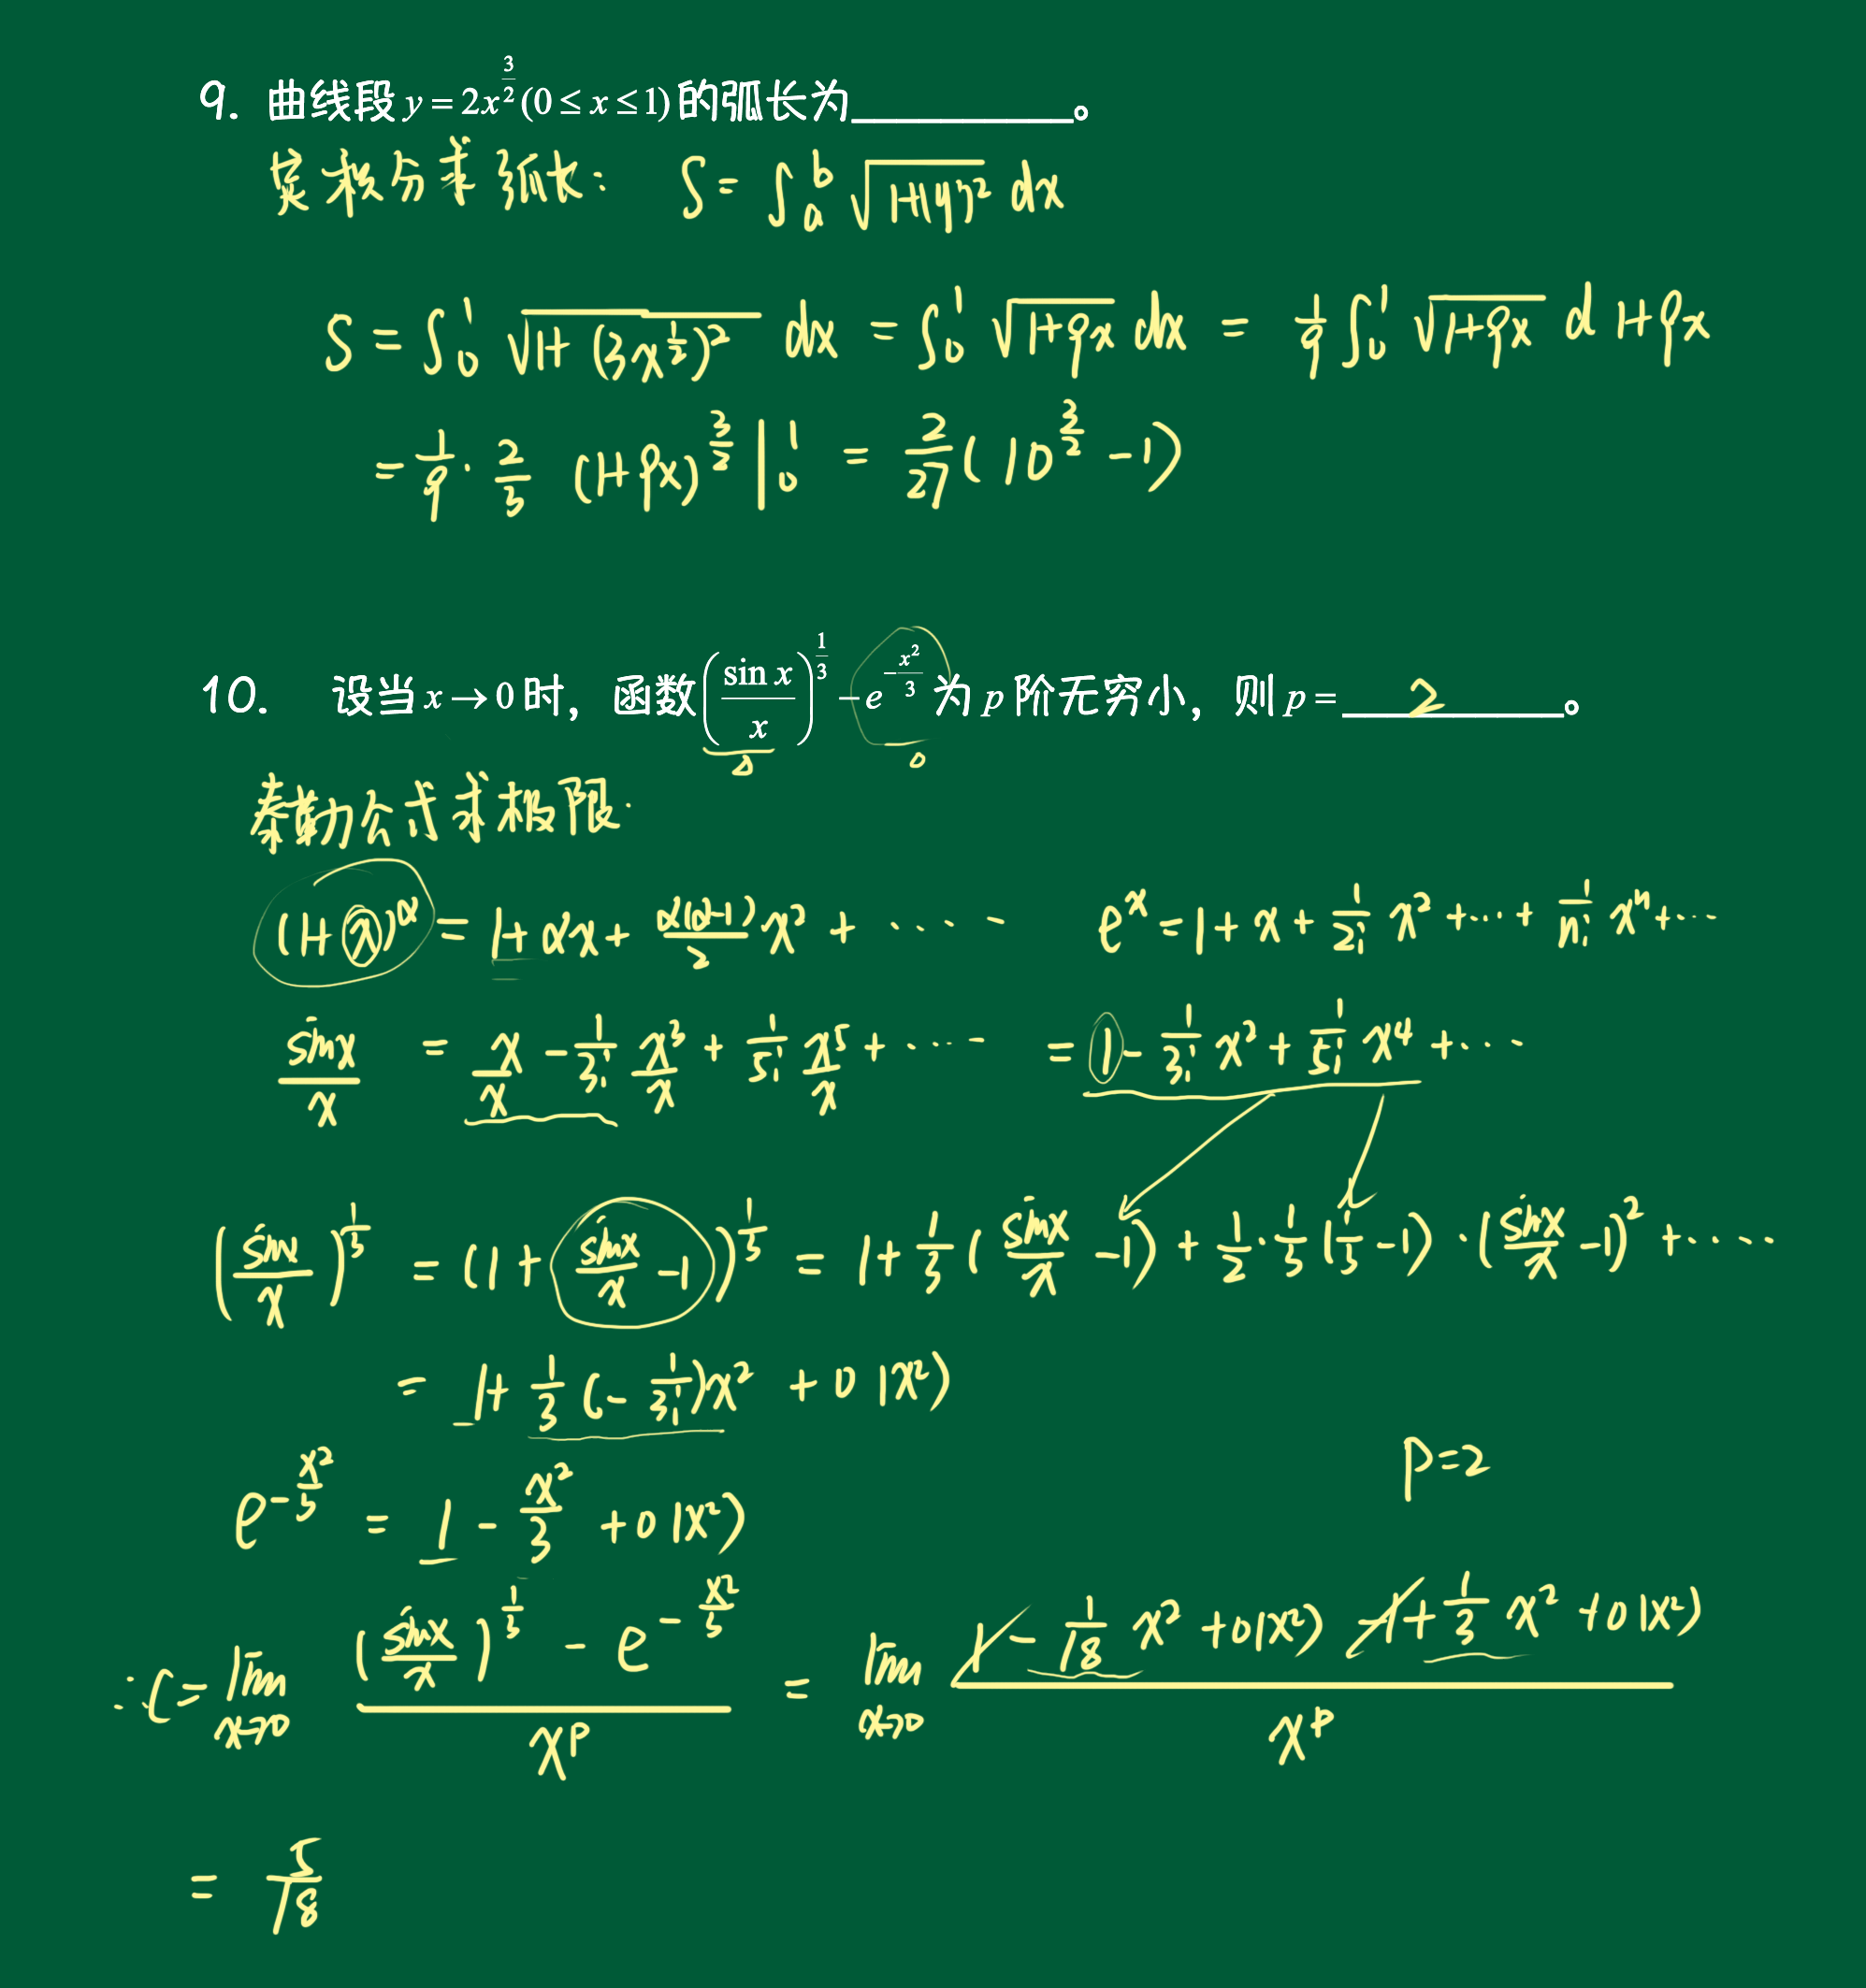 9. 曲线段 y = 2x^{3/2} (0 ≤ x ≤ 1) 的弧长为____________。
定积分求弧长: S = ∫_a^b √(1+(y')²) dx
S = ∫_0^1 √(1+(3x^{1/2})²) dx = ∫_0^1 √(1+9x) dx = 1/9 ∫_0^1 √(1+9x) d 1+9x
= 1/9 · 2/3 (1+9x)^{3/2} |_0^1 = 2/27 (10^{3/2} - 1)
10. 设当 x → 0 时, 函数 (sin x / x)^{1/3} - e^{-x²/3} 为 p 阶无穷小, 则 p = ____2____。
泰勒公式求极限.
(1+x)^α = 1 + αx + α(α-1)/2 x² + ···· e^x = 1 + x + 1/2! x² + ··· + 1/n! x^n + ···
sinx/x = x/x - 1/3! x³/x + 1/5! x⁵/x + ···· = 1 - 1/3! x² + 1/5! x⁴ + ···
(sinx/x)^{1/3} = (1 + sinx/x - 1)^{1/3} = 1 + 1/3 (sinx/x - 1) + 1/2 · 1/3 (1/3 - 1) · (sinx/x - 1)² + ····
= 1 + 1/3 (- 1/3!) x² + o(x²)
p = 2
e^{-x²/3} = 1 - x²/3 + o(x²)
∴ C = lim_{x→0} ((sinx/x)^{1/3} - e^{-x²/3}) / x^p = lim_{x→0} (1 - 1/18 x² + o(x²) - 1 + 1/3 x² + o(x²)) / x^p
= 5/18